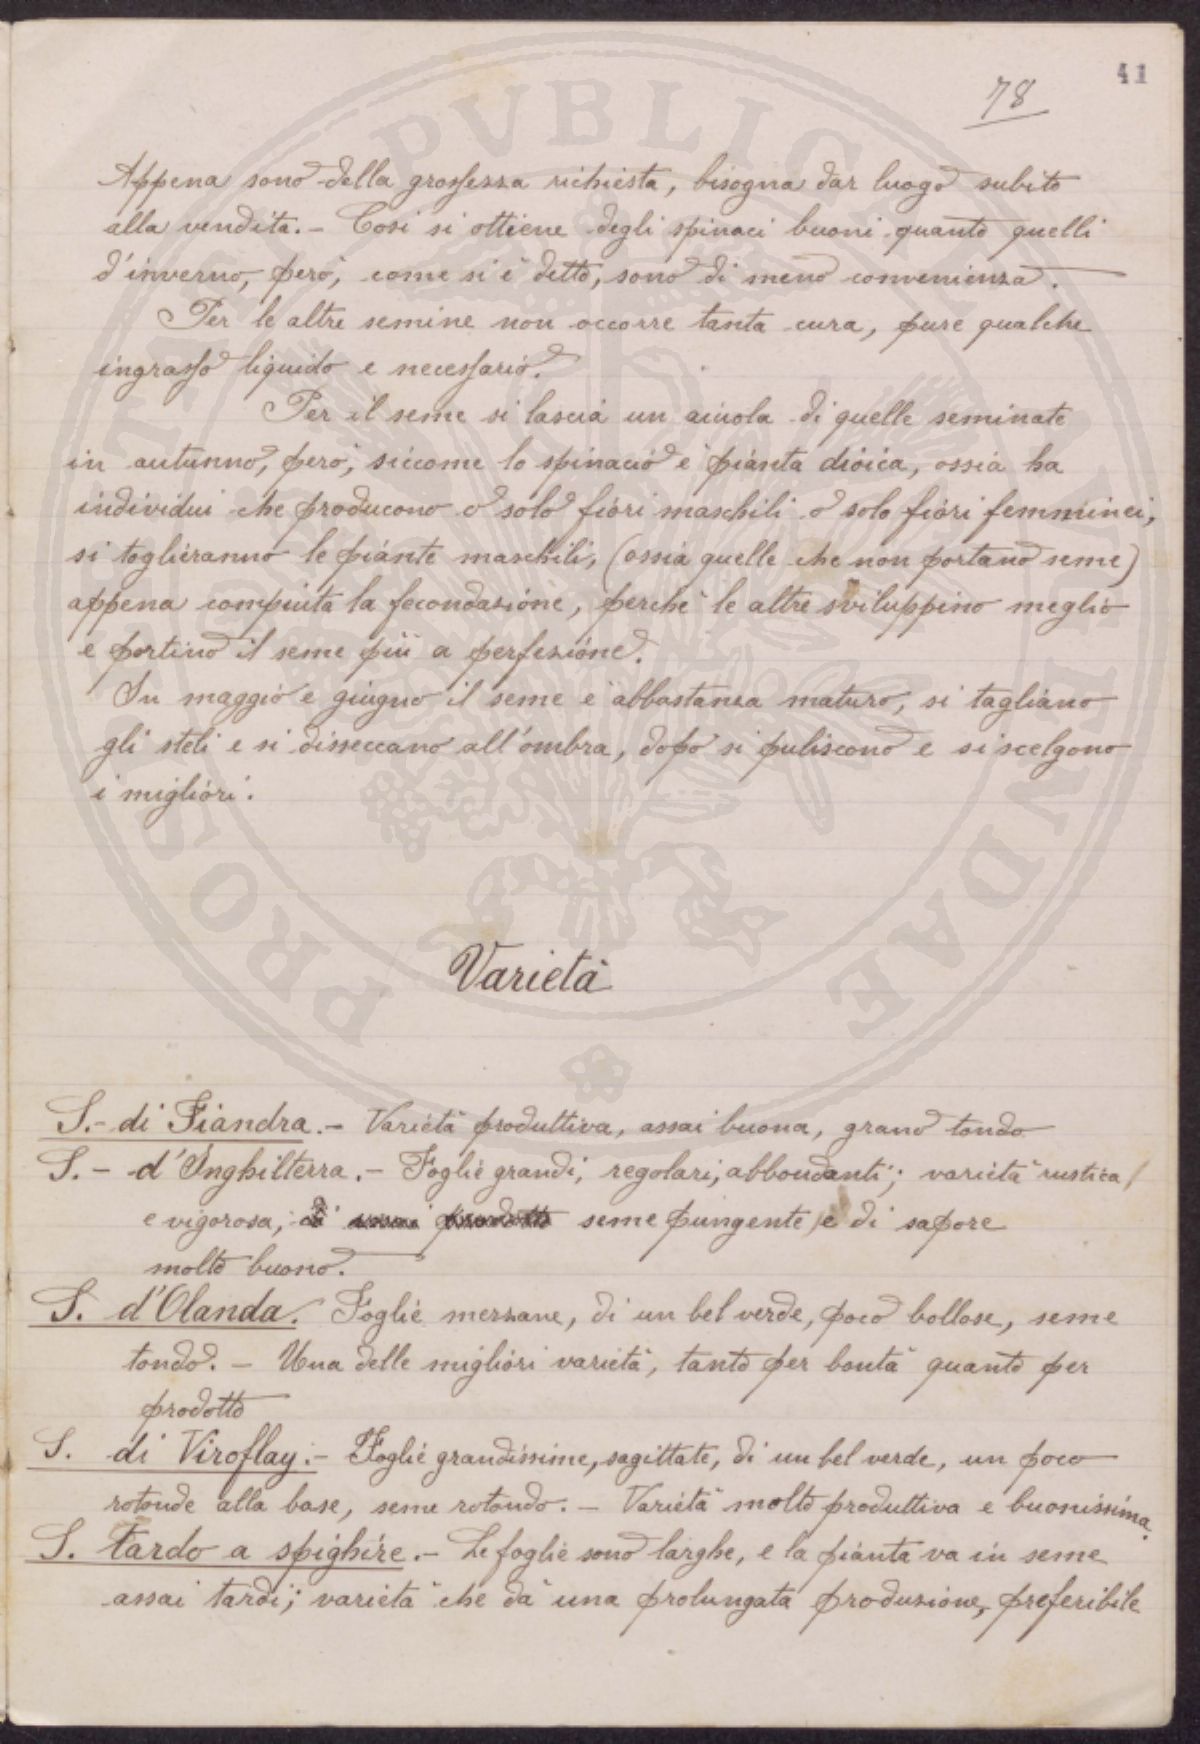 41
78
Appena sono della grossezza richiesta, bisogna dar luogo subito
alla vendita.- Così si ottiene degli spinaci buoni quanto quelli
d'inverno, però, come si è detto, sono di meno convenienza.
Per le altre semine non occorre tanta cura, pure qualche
ingrasso liquido e necessario.
Per il seme si lascia un aiuola di quelle seminate
in autunno, però, siccome lo spinacio è pianta dioica, ossia ha
individui che producono o solo fiori maschili o solo fiori femminei,
si toglieranno le piante maschili, (ossia quelle che non portano seme)
appena compiuta la fecondazione, perchè le altre sviluppino meglio
e portino il seme più a perfezione.
In maggio e giugno il seme è abbastanza maturo, si tagliano
gli steli e si disseccano all'ombra, dopo si puliscono e si scelgono
i migliori.
Varietà
S.- di Fiandra.- Varietà produttiva, assai buona, grano tondo
S.- d'Inghilterra.- Foglie grandi, regolari, abbondanti; varietà rustica
e vigorosa, di seme pungente, e di sapore
molto buono.
S. d'Olanda. Foglie mezzane, di un bel verde, poco bollose, seme
tondo.- Una delle migliori varietà, tanto per bontà quanto per
prodotto
S. di Viroflay.- Foglie grandissime, sagittate, di un bel verde, un poco
rotonde alla base, seme rotondo.- Varietà molto produttiva e buonissima.
S. tardo a spighire.- Le foglie sono larghe, e la pianta va in seme
assai tardi; varietà che dà una prolungata produzione, preferibile
PROSPERITATI PVBLICAE AVGENDAE